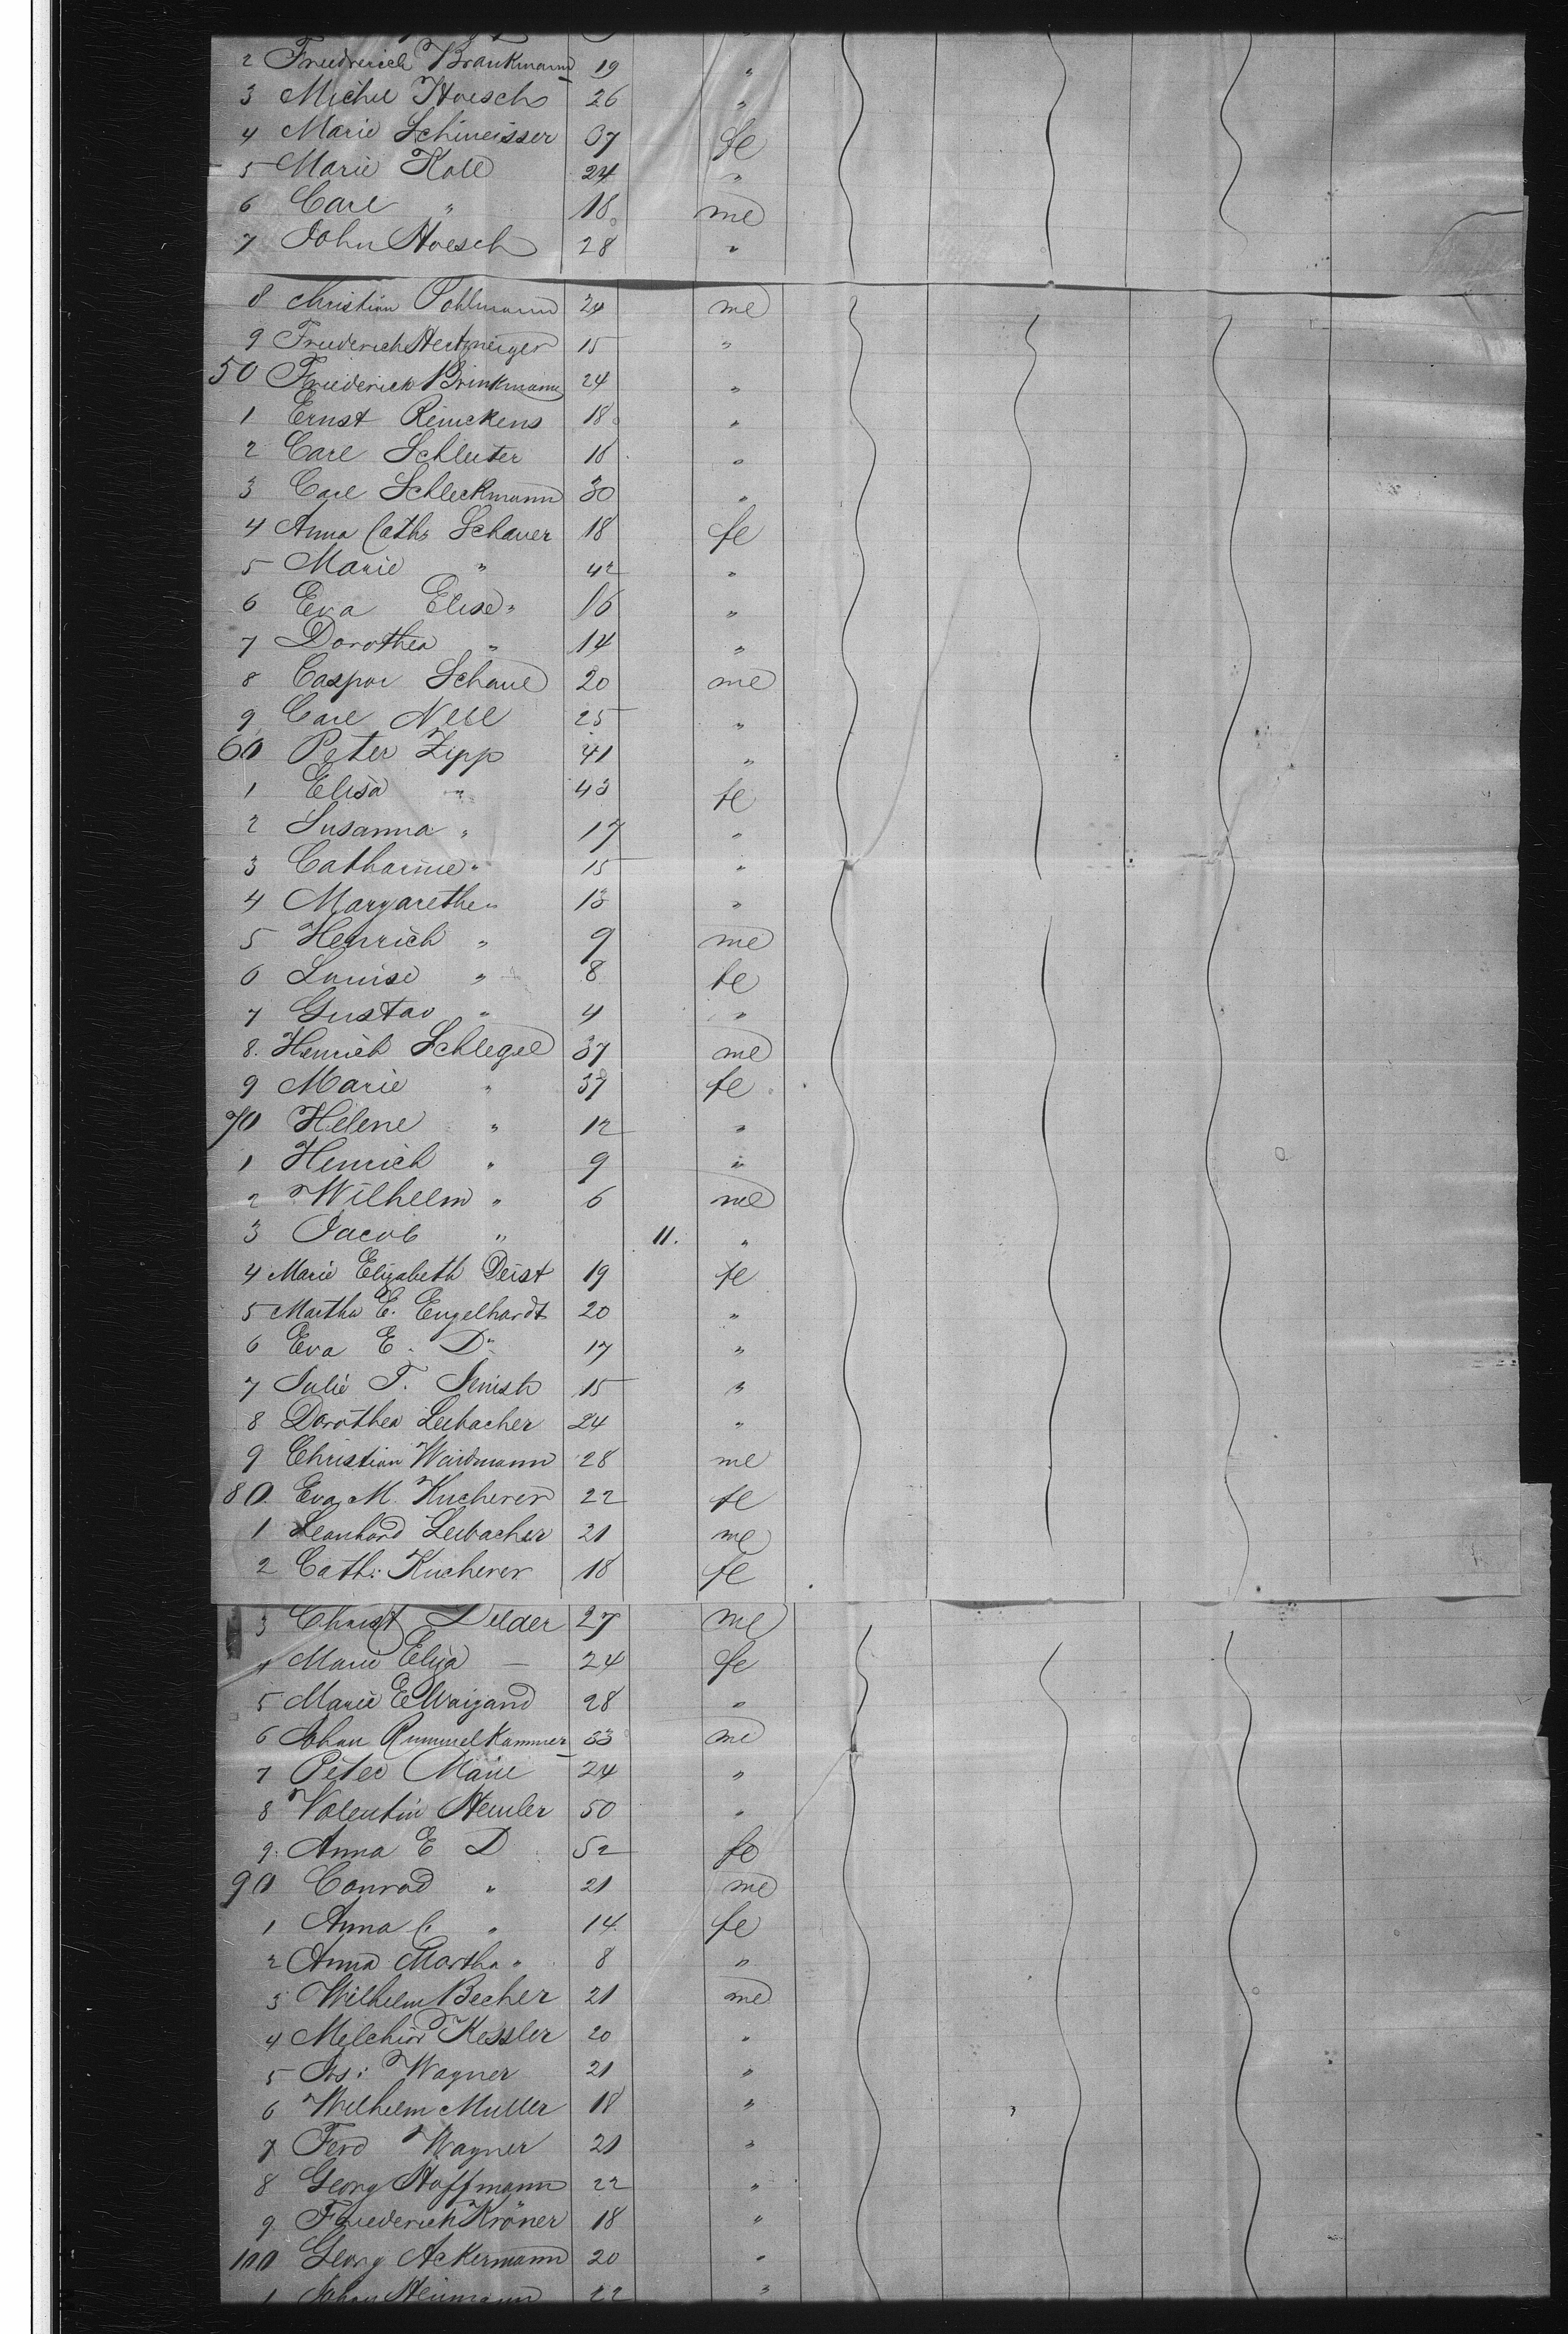 2 Friederich Brankmann 19 "
3 Michel Hoesch 26 "
4 Marie Schmeisser 37 fe
5 Marie Koll 24 "
6 Carl " 18 me
7 John Hoesch 28 "
8 Christian Pohlmann 24 me
9 Friederich 15 "
50 Friederich Brinkmann 24 "
1 Ernst Reinckens 18 "
2 Carl Schluter 18 "
3 Carl Schleckmann 30 "
4 Anna Cath: Schauer 18 fe
5 Marie " 42 "
6 Eva Elise " 16 "
7 Dorothea " 14 "
8 Caspar Schaul 20 me
9 Carl Nell 25 "
60 Peter Zipp 41 "
1 Elisa " 43 fe
2 Susanna " 17 "
3 Catharine " 15 "
4 Margarethe " 13 "
5 Heinrich " 9 me
6 Louise " 8 fe
7 Gustav " 4 "
8. Heinrich Schlegel 37 me
9 Marie " 37 fe
70 Helene " 12 "
1 Heinrich " 9 "
2 Wilhelm " 6 me
3 Jacob " 11. "
4 Marie Elizabeth Deist 19 fe
5 Martha E. Engelhardt 20 "
6 Eva E. D° 17 "
7 Julie T. 15 "
8 Dorothea Leebacher 24 "
9 Christian Waidmann 28 me
80 Eva M. Kucherer 22 fe
1 Leonhard Leebacher 21 me
2 Cath: Kucherer 18 fe
3 Christ Delder 27 me
4 Marie Eliza — 24 fe
5 Marie E Waigand 28 "
6 Johan Rummelkammer 33 me
7 Peter 24 "
8 Valentin Hemler 50 "
9. Anna E D 52 fe
90 Conrad " 21 me
1 Anna C. " 14 fe
2 Anna Martha " 8 "
3 Wilhelm Becher 21 me
4 Melchior Kessler 20 "
5 Jos: Wagner 21 "
6 Wilhelm Muller 18 "
7 Ferd Wagner 21 "
8 Georg Hoffmann 22 "
9 Friederich Kröner 18 "
100 Georg Ackermann 20 "
1 Johan Heinmann 22 "